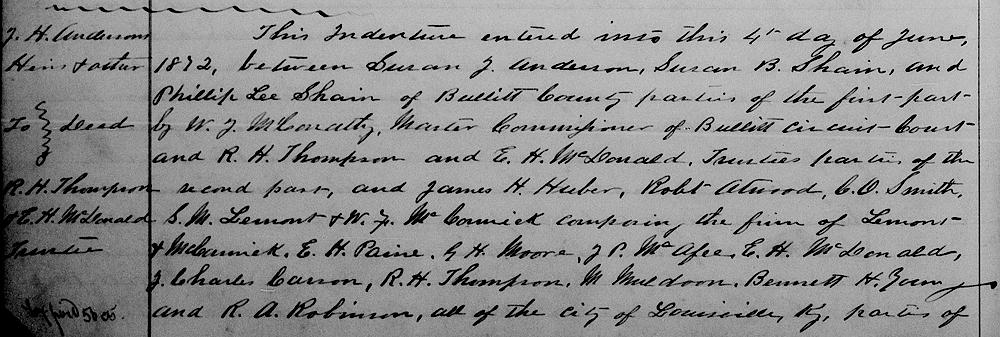 J. H. Anderson
Heirs & others
To } Deed
R. H. Thompson
& E. H. McDonald
Trustee
Tax paid 50 cts.
This Indenture entered into this 4th day of June,
1872, between Susan J. Anderson, Susan B. Shain, and
Phillip Lee Shain of Bullitt County parties of the first part
by W. J. McConathy, Master Commissioner of Bullitt circuit Court
and R. H. Thompson and E. H. McDonald, Trustees parties of the
second part, and James H. Huber, Robt Atwood, C. O. Smith,
S. M. Lemont & W. F. McCormick composing the firm of Lemont
& McCormick, E. H. Paine, G H. Moore, J P. McAfee, E. H. McDonald,
J. Charles Carson, R. H. Thompson, M Muldoon, Bennett H. Young
and R. A. Robinson, all of the city of Louisville, Ky, parties of